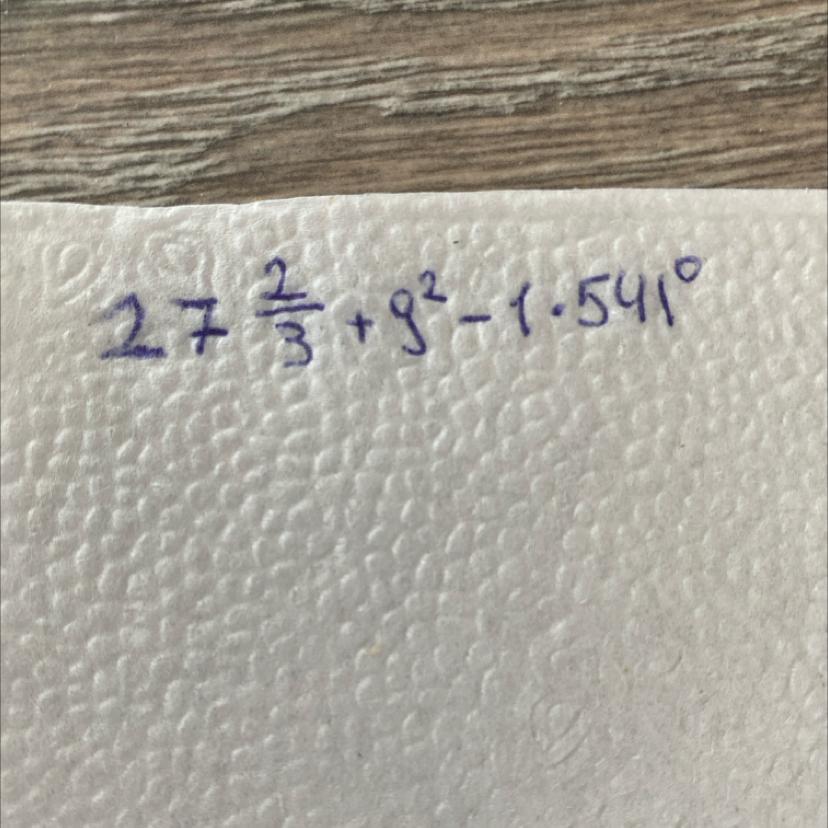 27 2/3 + 9² - 1·541⁰